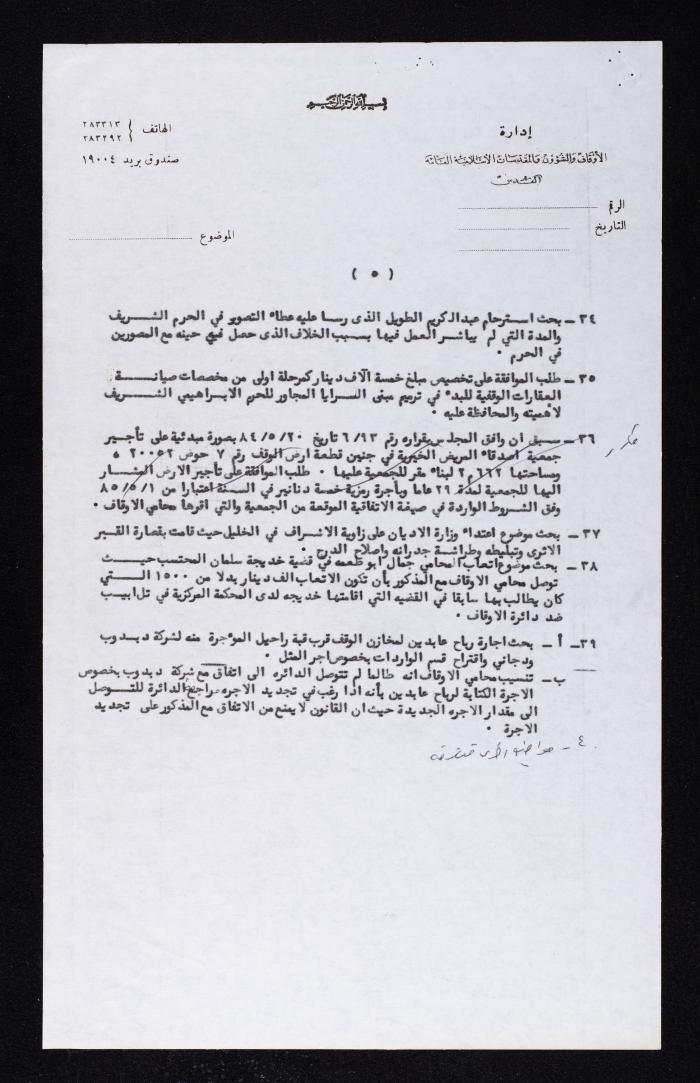 بسم الله الرحمن الرحيم
إدارة
الأوقاف والشؤون والمقدسات الإسلامية العامة
القدس
الهاتف { ٢٨٣٣١٣
٢٨٣٢٩٢
صندوق بريد ١٩٠٠٤
الرقم
التاريخ
الموضوع
( ٥ )
٣٤ـ بحث استرحام عبدالكريم الطويل الذى رسا عليه عطاء التصوير في الحرم الشــريف
والمدة التي لم يباشر العمل فيها بسبب الخلاف الذى حصل في حينه مع المصورين
في الحرم ٠
٣٥ـ طلب الموافقة على تخصيص مبلغ خمسة آلاف دينار كمرحلة اولى من مخصصات صيانــة
العقارات الوقفية للبدء في ترميم مبنى السرايا المجاور للحرم الابراهيمي الشــريف
لاهميته والمحافظة عليه ٠
٣٦ـ سبق ان وافق المجلس بقراره رقم ٦/٩٣ تاريخ ٨٤/٥/٢٠ بصورة مبدئية على تأجــير
مكرر
جمعية اصدقاء المريض الخيرية في جنين قطعة ارض الوقف رقم ٧ حوض ٢٠٠٥٢ ،
ومساحتها ٦٦٢م٢ لبناء مقر للجمعية عليها ٠ طلب الموافقة على تأجير الارض المشــار
اليها للجمعية لمدة ٢٩ عاما وبأجرة رمزية خمسة دنانير في السنة اعتبارا من ٨٥/٥/١
وفق الشروط الواردة في صيغة الاتفاقية الموقعة من الجمعية والتي اقرها محامي الاوقاف ٠
٣٧ـ بحث موضوع اعتداء وزارة الاديان على زاوية الاشراف في الخليل حيث قامت بقصارة القبر
الاثرى وتبليطه وطراشة جدرانه واصلاح الدرج ٠
٣٨ـ بحث موضوع اتعاب المحامي جمال ابو طعمه في قضية خديجة سلمان المحتسب حيــث
توصل محامي الاوقاف مع المذكور بأن تكون الاتعاب الف دينار بدلا من ١٥٠٠ الــتي
كان يطالب بها سابقا في القضيه التي اقامتها خديجه لدى المحكمة المركزية في تل ابيب
ضد دائرة الاوقاف ٠
٣٩ـ أ ـ بحث اجارة رباح عابدين لمخازن الوقف قرب قبة راحيل المؤجرة منه لشركة دبدوب
ودجاني واقتراح قسم الواردات بخصوص اجر المثل ٠
ب ـ تنسيب محامي الاوقاف انه طالما لم تتوصل الدائره الى اتفاق مع شركة دبدوب بخصوص
الاجرة الكتابة لرباح عابدين بأنه اذا رغب في تجديد الاجره مراجعة الدائرة للتــوصل
الى مقدار الاجره الجديدة حيث ان القانون لا يمنع من الاتفاق مع المذكور على تجديد
الاجرة ٠
٤٠ـ مواضيع اخرى متفرقه